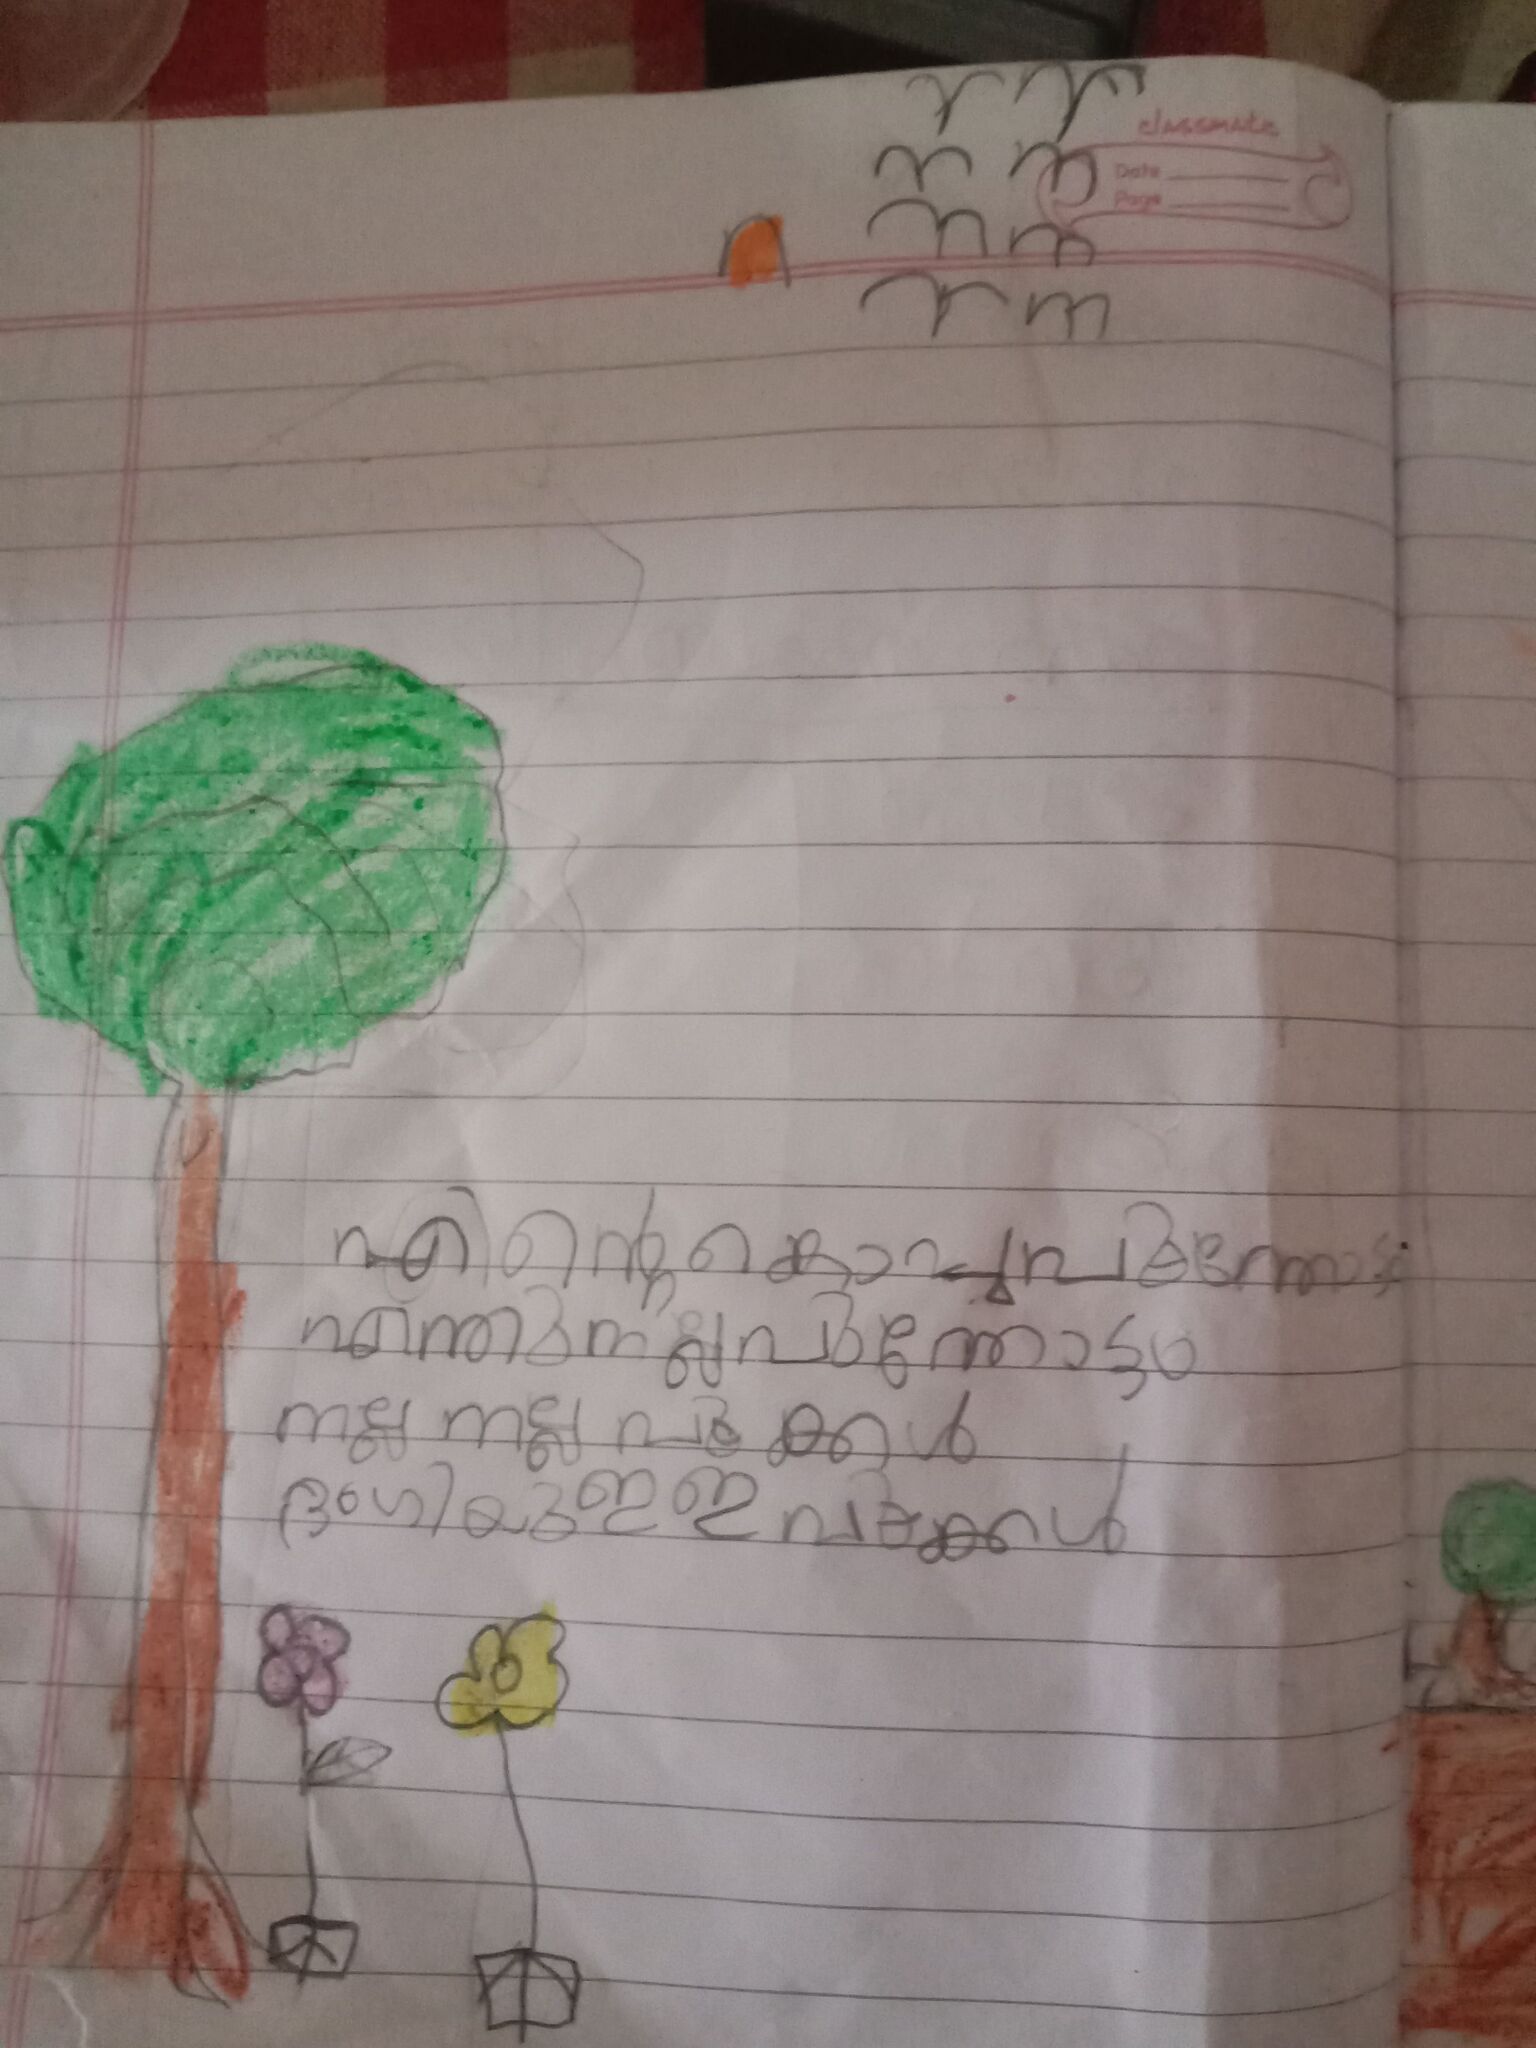 classmate
Date
Page
എന്റെ കൊച്ചുപൂന്തോട്ടം
എന്തു നല്ല പൂന്തോട്ടം
നല്ല നല്ല പൂക്കൾ
ഭംഗിയുള്ള പൂക്കൾ